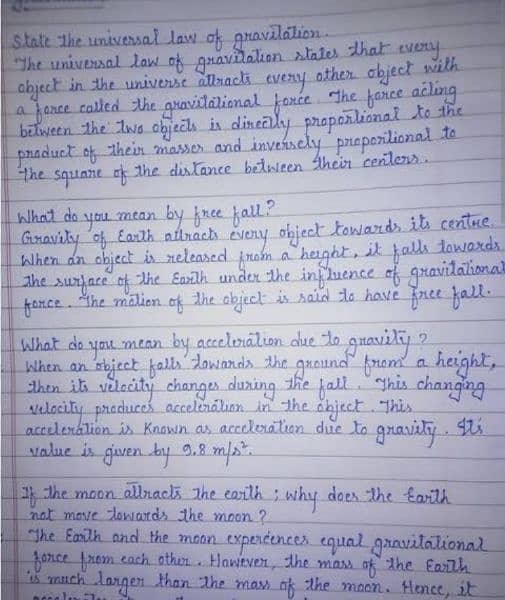 State the universal law of gravitation.
The universal law of gravitation states that every
object in the universe attracts every other object with
a force called the gravitational force. The force acting
between the two objects is directly proportional to the
product of their masses and inversely proportional to
the square of the distance between their centers.
What do you mean by free fall?
Gravity of Earth attracts every object towards its centre.
When an object is released from a height, it falls towards
the surface of the Earth under the influence of gravitational
force. The motion of the object is said to have free fall.
What do you mean by acceleration due to gravity?
When an object falls towards the ground from a height,
then its velocity changes during the fall. This changing
velocity produces acceleration in the object. This
acceleration is Known as acceleration due to gravity. Its
value is given by 9.8 m/s².
If the moon attracts the earth; why does the Earth
not move towards the moon?
The Earth and the moon experiences equal gravitational
force from each other. However, the mass of the Earth
is much larger than the mass of the moon. Hence, it